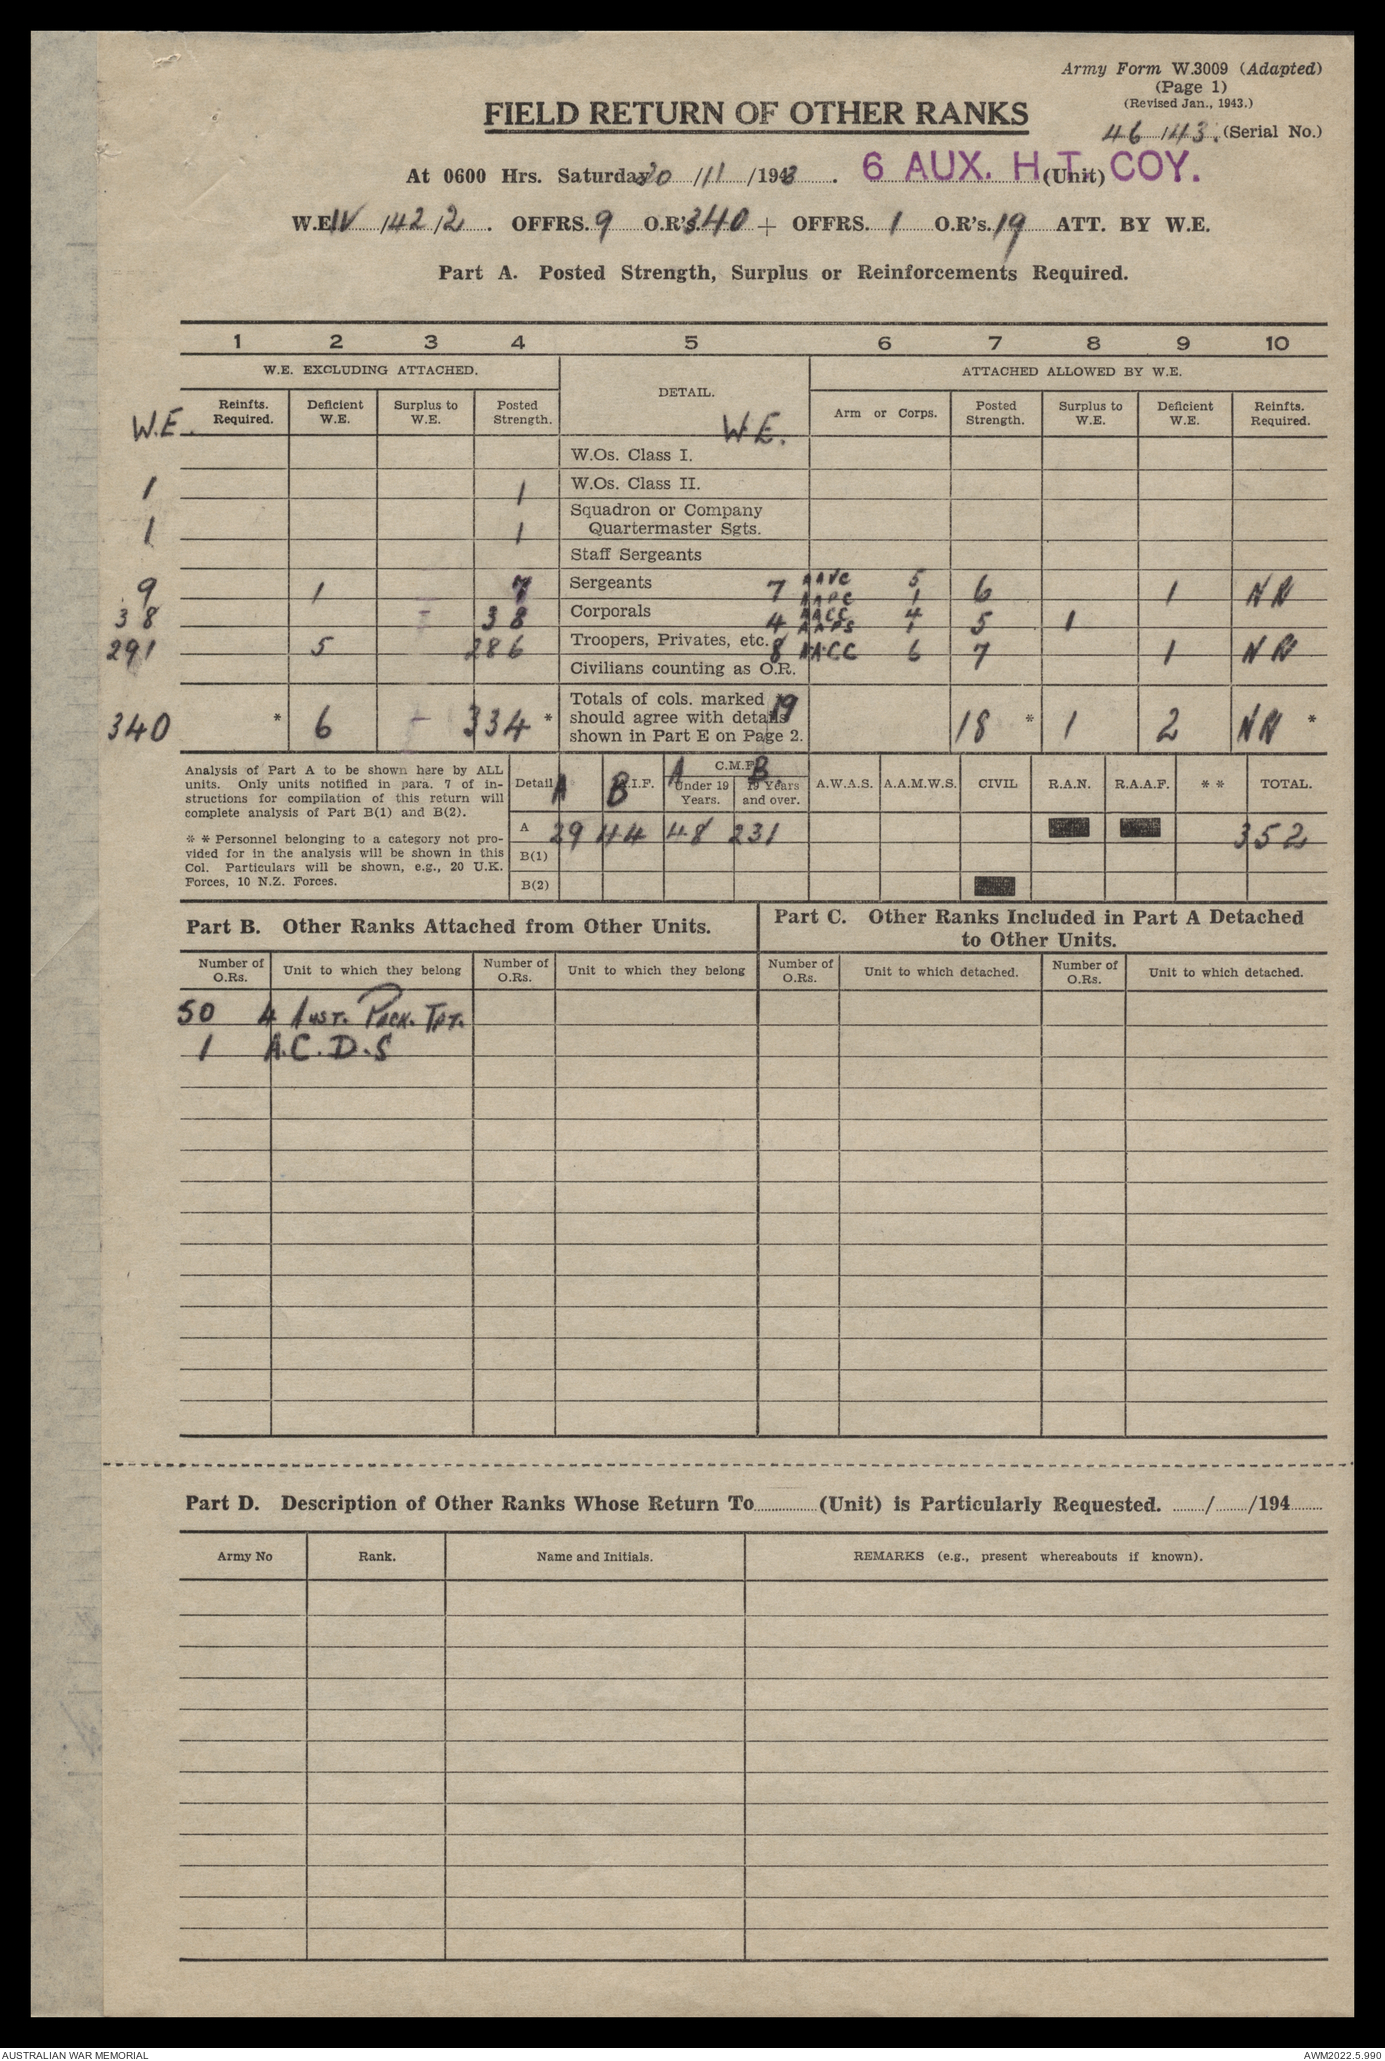 Army Form W.3009 (Adapted)
(Page 1)
(Revised Jan., 1943.)
FIELD RETURN OF OTHER RANKS
46/43. (Serial No.)
At 0600 Hrs. Saturday 20/11/1943. 6 AUX. H.T. COY. (Unit)
W.E. IV/42/2. OFFRS. 9 O.R's. 340 + OFFRS. 1 O.R's. 19 ATT. BY W.E.
Part A. Posted Strength, Surplus or Reinforcements Required.
1 2 3 4 5 6 7 8 9 10
W.E. EXCLUDING ATTACHED. DETAIL. ATTACHED ALLOWED BY W.E.
W.E. Reinfts. Required. Deficient W.E. Surplus to W.E. Posted Strength. W.E. Arm or Corps. Posted Strength. Surplus to W.E. Deficient W.E. Reinfts. Required.
W.Os. Class I.
1 1 W.Os. Class II.
1 1 Squadron or Company Quartermaster Sgts.
Staff Sergeants
9 1 Sergeants 7 AAVC 5 6 1 NN
AAPC 1
38 38 Corporals 4 AACC 4 5 1
1
291 5 286 Troopers, Privates, etc. 8 AACC 6 7 1 NN
Civilians counting as O.R.
340 * 6 - 334 * Totals of cols. marked * should agree with details shown in Part E on Page 2. 19 18 * 1 2 NN *
Analysis of Part A to be shown here by ALL
units. Only units notified in para. 7 of in-
structions for compilation of this return will
complete analysis of Part B(1) and B(2).
* * Personnel belonging to a category not pro-
vided for in the analysis will be shown in this
Col. Particulars will be shown, e.g., 20 U.K.
Forces, 10 N.Z. Forces.
C.M.F.
Detail A B .I.F. A Under 19 Years. B. 19 Years and over. A.W.A.S. A.A.M.W.S. CIVIL R.A.N. R.A.A.F. * * TOTAL.
A 29 44 48 231 352
B(1)
B(2)
Part B. Other Ranks Attached from Other Units.
Part C. Other Ranks Included in Part A Detached
to Other Units.
Number of O.Rs. Unit to which they belong Number of O.Rs. Unit to which they belong Number of O.Rs. Unit to which detached. Number of O.Rs. Unit to which detached.
50 4 Aust. Pack. Tpt.
1 A.C.D.S
Part D. Description of Other Ranks Whose Return To (Unit) is Particularly Requested. / /194
Army No Rank. Name and Initials. REMARKS (e.g., present whereabouts if known).
AUSTRALIAN WAR MEMORIAL AWM2022.5.990